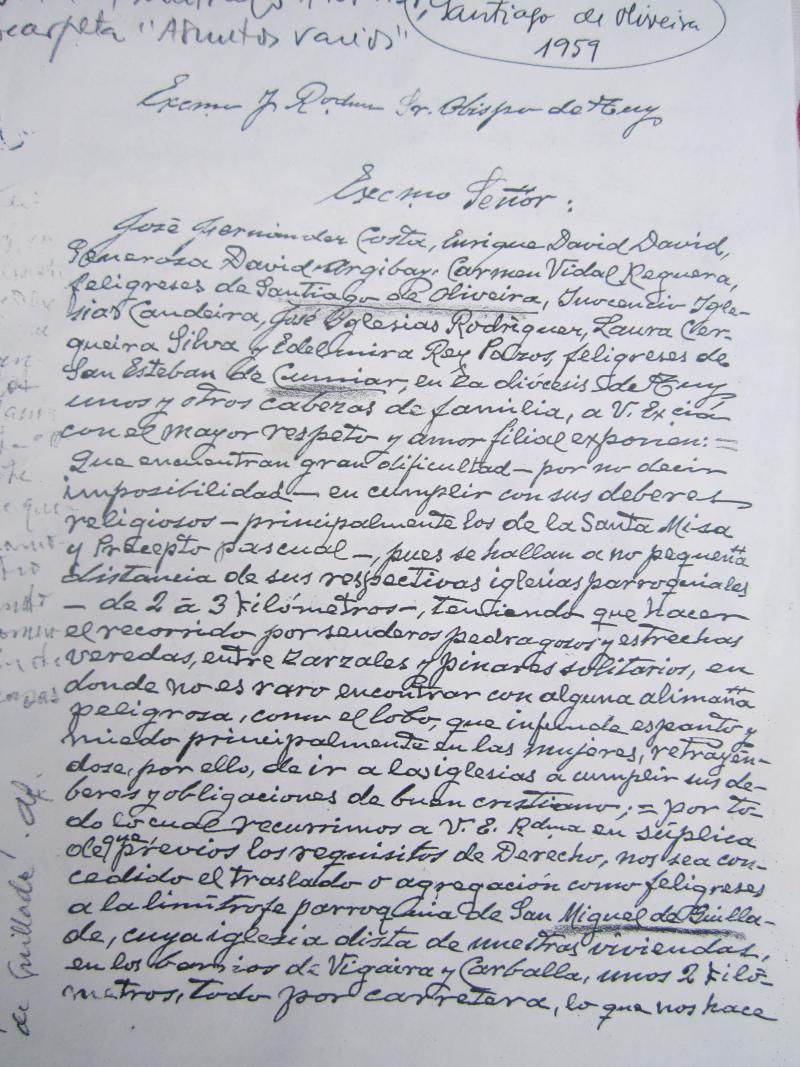 Santiago de Oliveira
carpeta "Asuntos varios"
1959
Excmo y Rvdmo Sr. Obispo de Tuy
Excmo Señor:
José Fernández Costa, Enrique David David,
Generosa David Argibay, Carmen Vidal Reguera,
feligreses de Santiago de Oliveira, Inocencio Igle-
sias Candeira, José Yglesias Rodríguez, Laura Cer-
queira Silva y Edelmira Rey Pazos, feligreses de
San Esteban de Cumiar, en la diócesis de Tuy,
unos y otros cabezas de familia, a V. Excia
con el mayor respeto y amor filial exponen: =
Que encuentran gran dificultad - por no decir
imposibilidad - en cumplir con sus deberes
religiosos - principalmente los de la Santa Misa
y Precepto pascual -, pues se hallan a no pequeña
distancia de sus respectivas iglesias parroquiales
- de 2 a 3 kilómetros -, teniendo que hacer
el recorrido por senderos pedragosos y estrechas
veredas, entre zarzales y pinares solitarios, en
donde no es raro encontrar con alguna alimaña
peligrosa, como el lobo, que infunde espanto y
miedo principalmente en las mujeres, retrayén-
dose, por ello, de ir a las iglesias a cumplir sus de-
beres y obligaciones de buen cristiano; = por to-
do lo cual recurrimos a V. E. Rdma en súplica
de que previos los requisitos de Derecho, nos sea con-
cedido el traslado o agregación como feligreses
a la limítrofe parroquia de San Miguel de Guilla-
de, cuya iglesia dista de nuestras viviendas,
en los barrios de Vigaira y Carballa, unos 2 kiló-
metros, todo por carretera, lo que nos hace
de Guillade